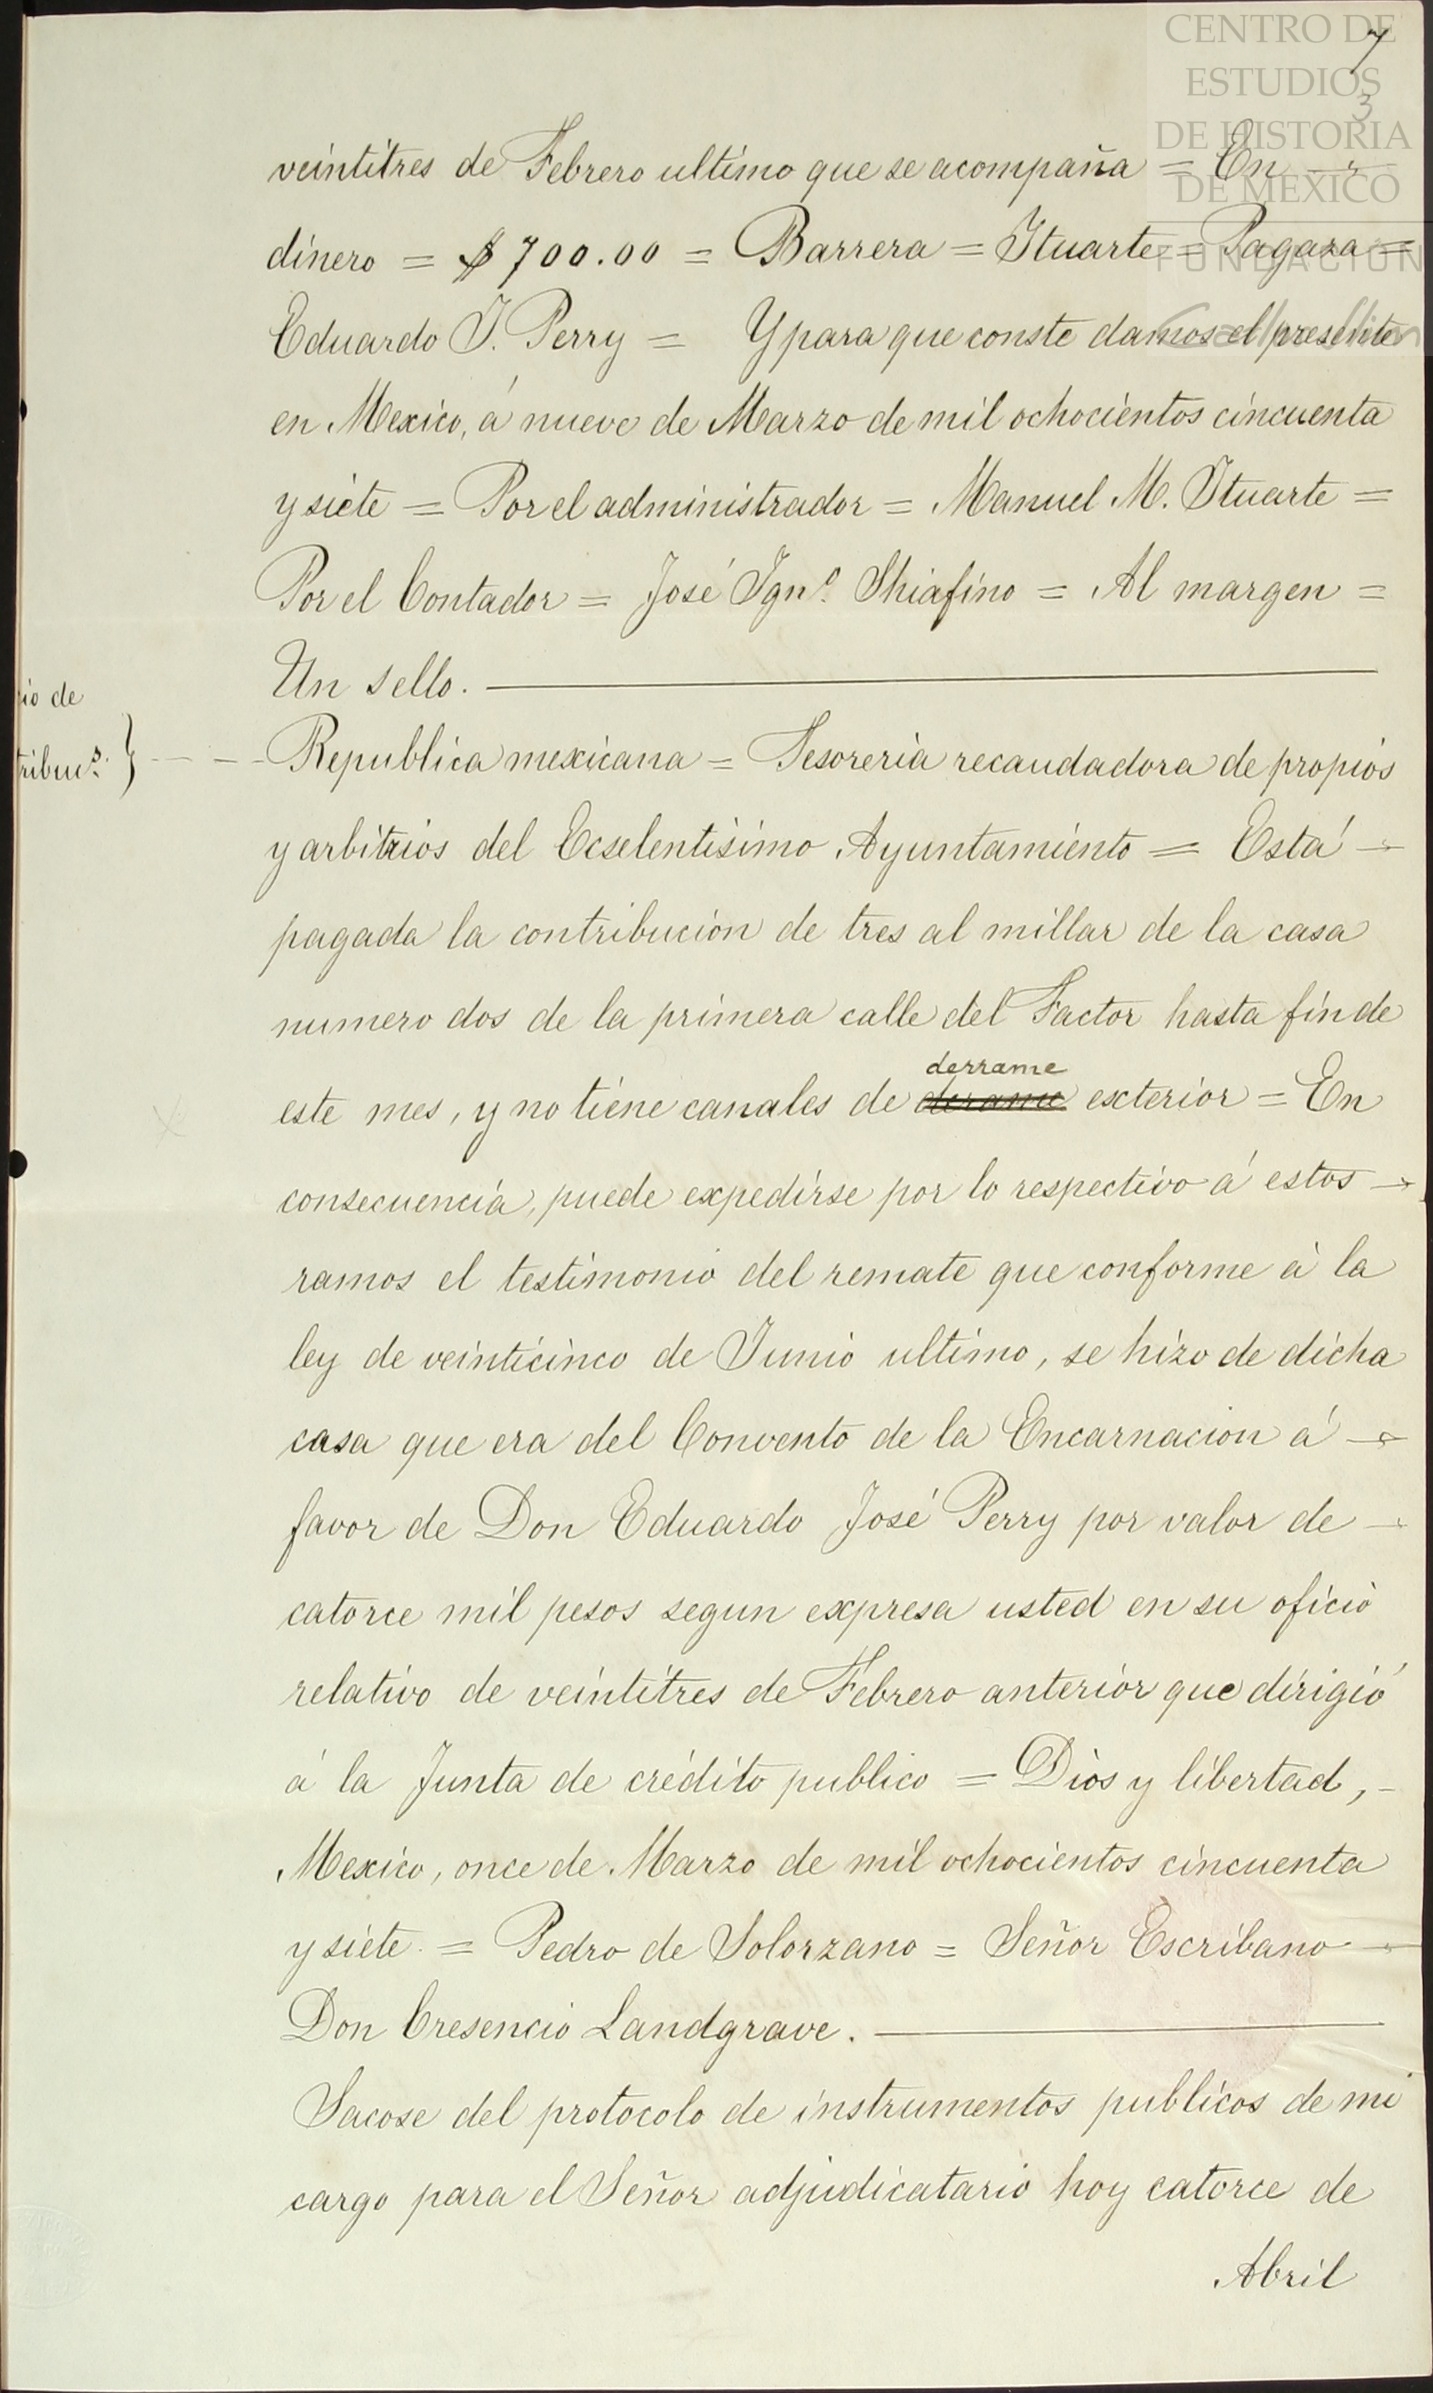 CENTRO DE
ESTUDIOS
DE HISTORIA
DE MEXICO
FUNDACIÓN
7
3
veintitres de Febrero ultimo que se acompaña = En
dinero = $700.00 = Barrera = Ituarte = Pagaza =
Eduardo J. Perry = Y para que conste damos el presente
en Mexico, á nueve de Marzo de mil ochocientos cincuenta
y siete = Por el administrador = Manuel M. Ituarte =
Por el Contador = José Ignº Shiafino = Al margen =
Un sello.
io de
tribucs. }
Republica mexicana = Tesoreria recaudadora de propios
y arbitrios del Ecselentisimo Ayuntamiento = Está
pagada la contribucion de tres al millar de la casa
numero dos de la primera calle del Factor hasta fin de
derrame
este mes, y no tiene canales de derame exterior = En
consecuencia, puede expedirse por lo respectivo á estos
ramos el testimonio del remate que conforme á la
ley de veinticinco de Junio ultimo, se hizo de dicha
casa que era del Convento de la Encarnacion á
favor de Don Eduardo José Perry por valor de
catorce mil pesos segun expresa usted en su oficio
relativo de veintitres de Febrero anterior que dirigió
á la Junta de crédito publico = Dios y libertad,
Mexico, once de Marzo de mil ochocientos cincuenta
y siete. = Pedro de Solorzano = Señor Escribano
Don Cresencio Landgrave.
Sacose del protocolo de instrumentos publicos de mi
cargo para el Señor adjudicatario hoy catorce de
Abril